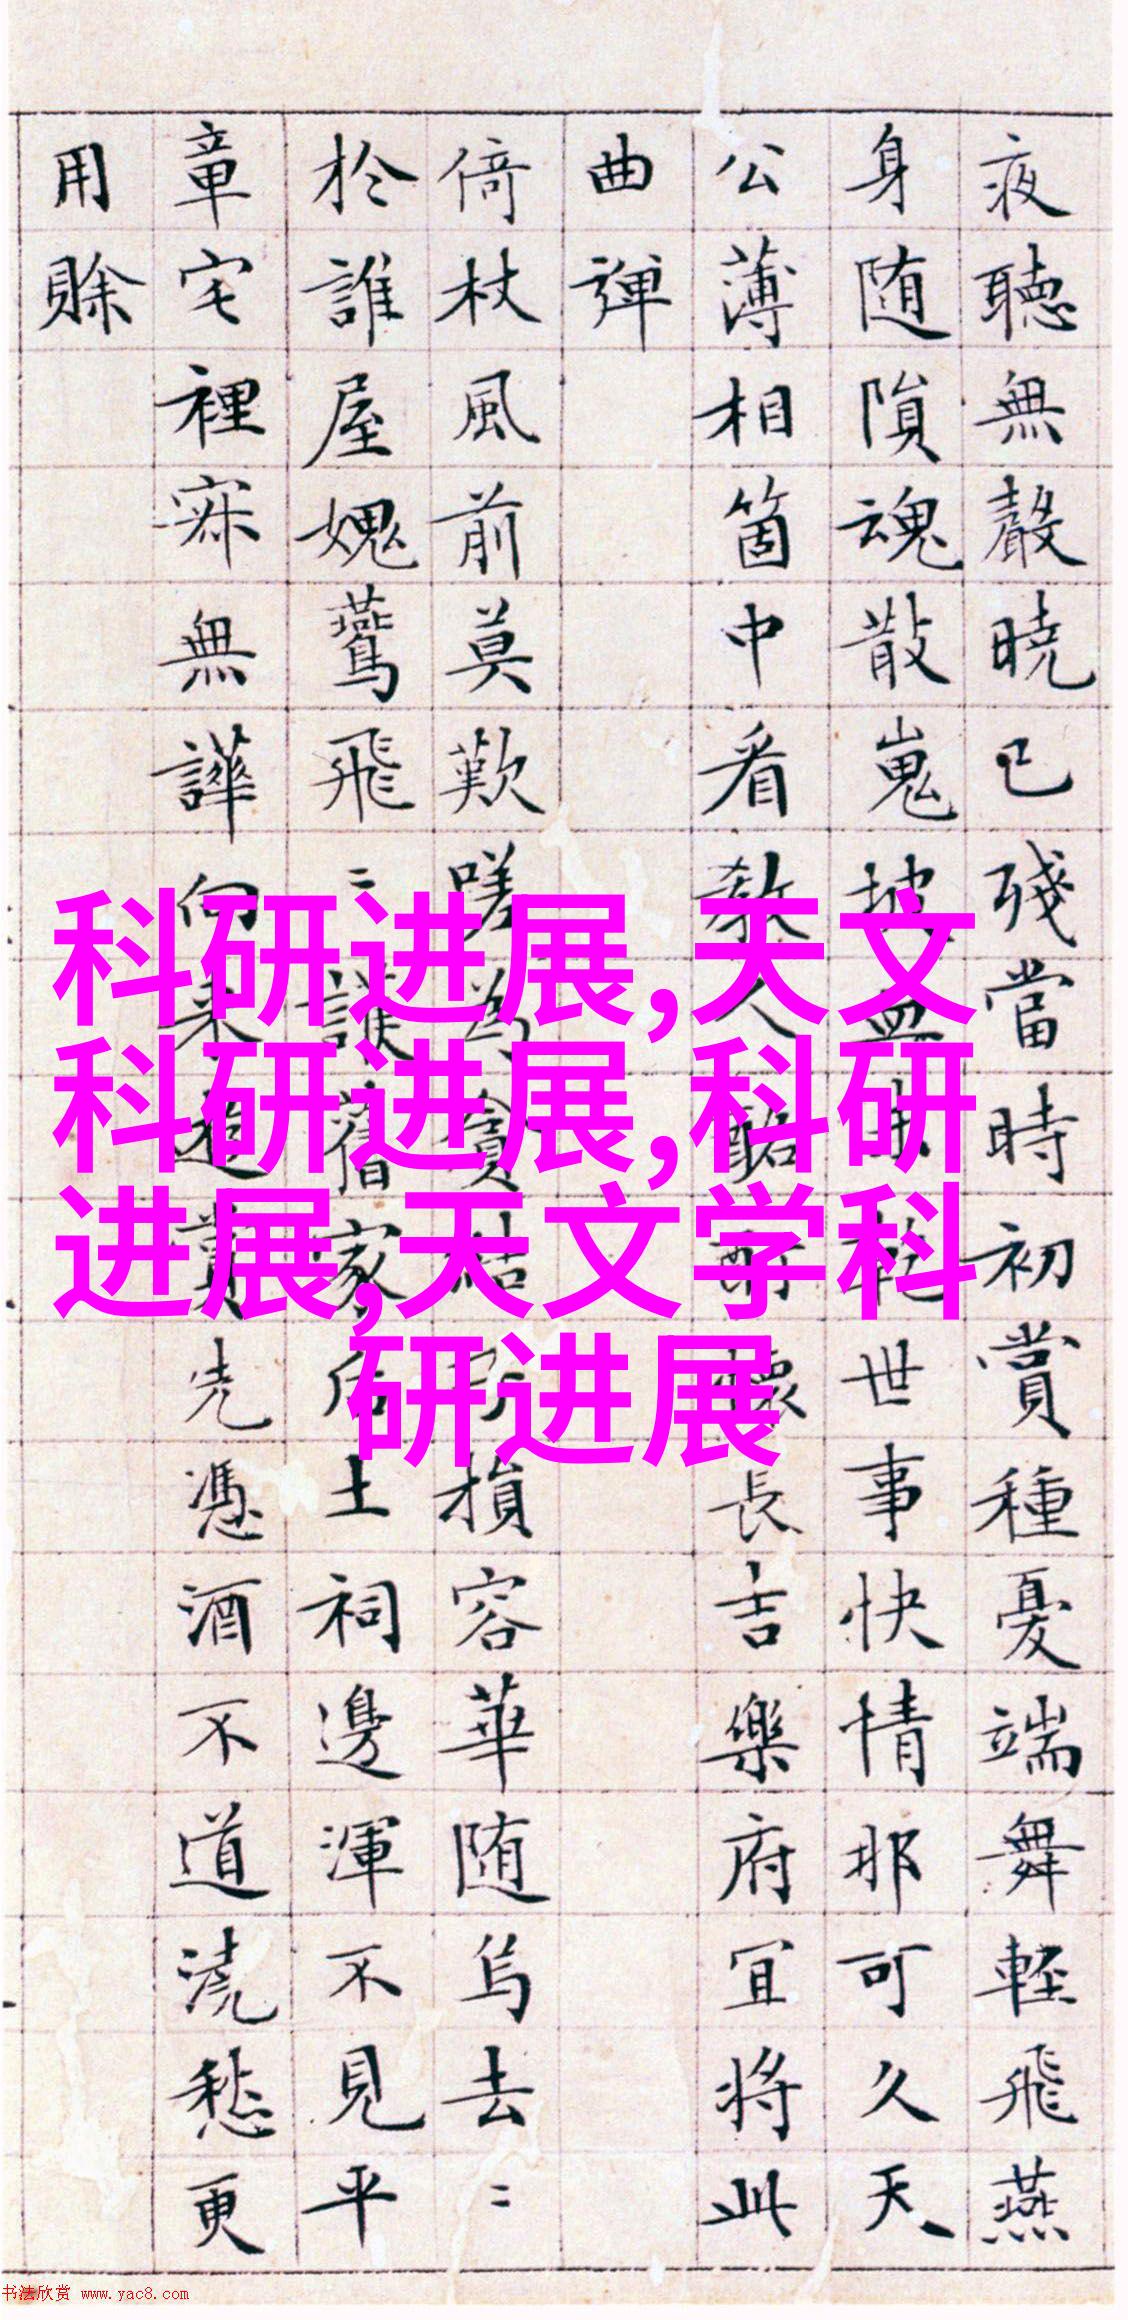 夜聽無聲曉已殘當時初賞種憂端舞輕飛燕
身随隕魂散嵬坡血未乾世事快情那可久天
公薄相箇中看教人懷長吉樂府宜將此
曲彈
倚杖風前莫歎嗟為貪結損容華随烏去〻
於誰屋媿鷰飛〻護舊家后土祠邊渾不見平
章宅裡寐無譁向來賞先憑酒不道澆愁更
用賒
科研进展,天文
科研进展,科研
进展,天文学科
研进展
书法欣赏 www.yac8.com